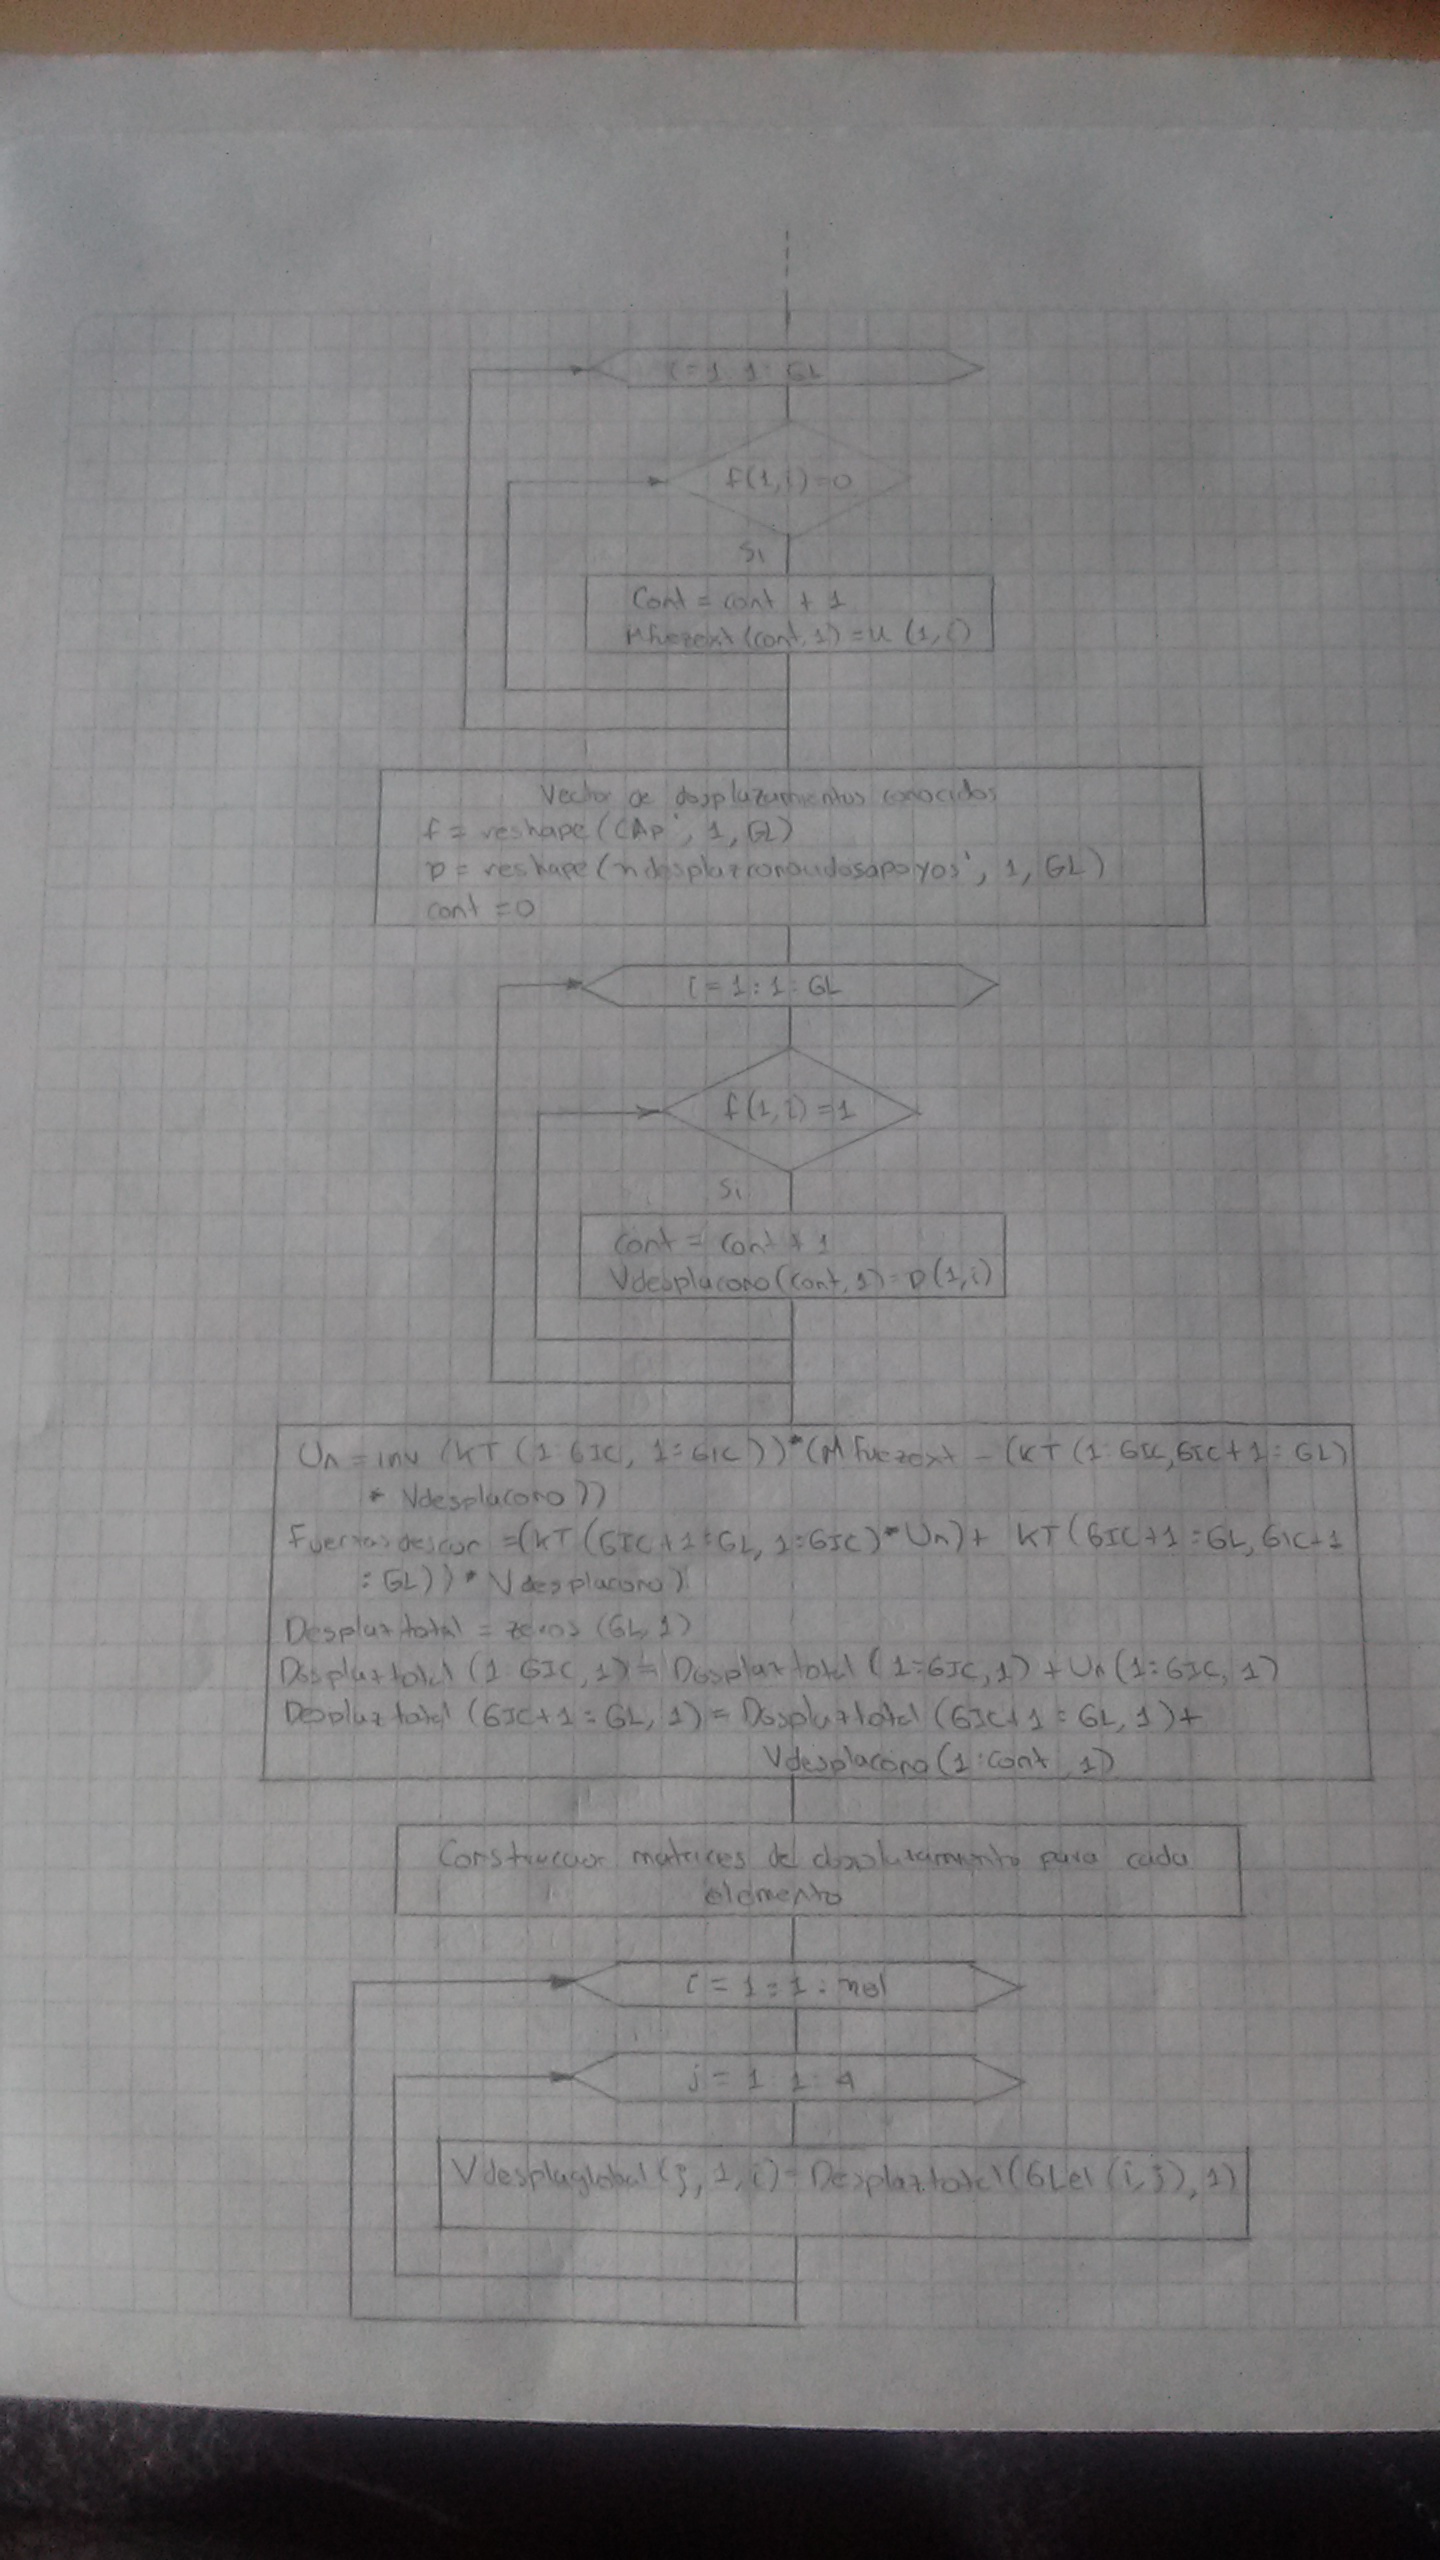 i = 1 : 1 : GL
f(1,i)=0
Si
Cont = cont + 1
Mfuezext(cont,1) = u (1,i)
Vector de desplazamientos conocidos
f = reshape(CAp', 1, GL)
p = reshape(ndesplazconocidosapoyos', 1, GL)
cont = 0
i = 1 : 1 : GL
f(1,i) = 1
Si
cont = cont + 1
Vdesplacono(cont,1) = p(1,i)
Un = inv (KT (1:GIC, 1:GIC))*(Mfuezext - (KT (1:GIC,GIC+1:GL)
* Vdesplacono))
Fuerzasdescon =(KT(GIC+1:GL, 1:GIC)*Un)+ KT(GIC+1:GL,GIC+1
:GL))* Vdesplacono)
Desplaztotal = zeros (GL,1)
Desplaztotal (1:GIC,1) = Desplaztotal (1:GIC,1) + Un(1:GIC, 1)
Desplaztotal (GIC+1:GL, 1) = Desplaztotal (GIC+1:GL, 1)+
Vdesplacono(1:cont, 1)
matrices de desplazamiento para cada
elemento
i = 1 : 1 : nel
j = 1 : 1 : 4
Vdesplaglobal(j, 1, i) = Desplaztotal(GLel(i,j),1)